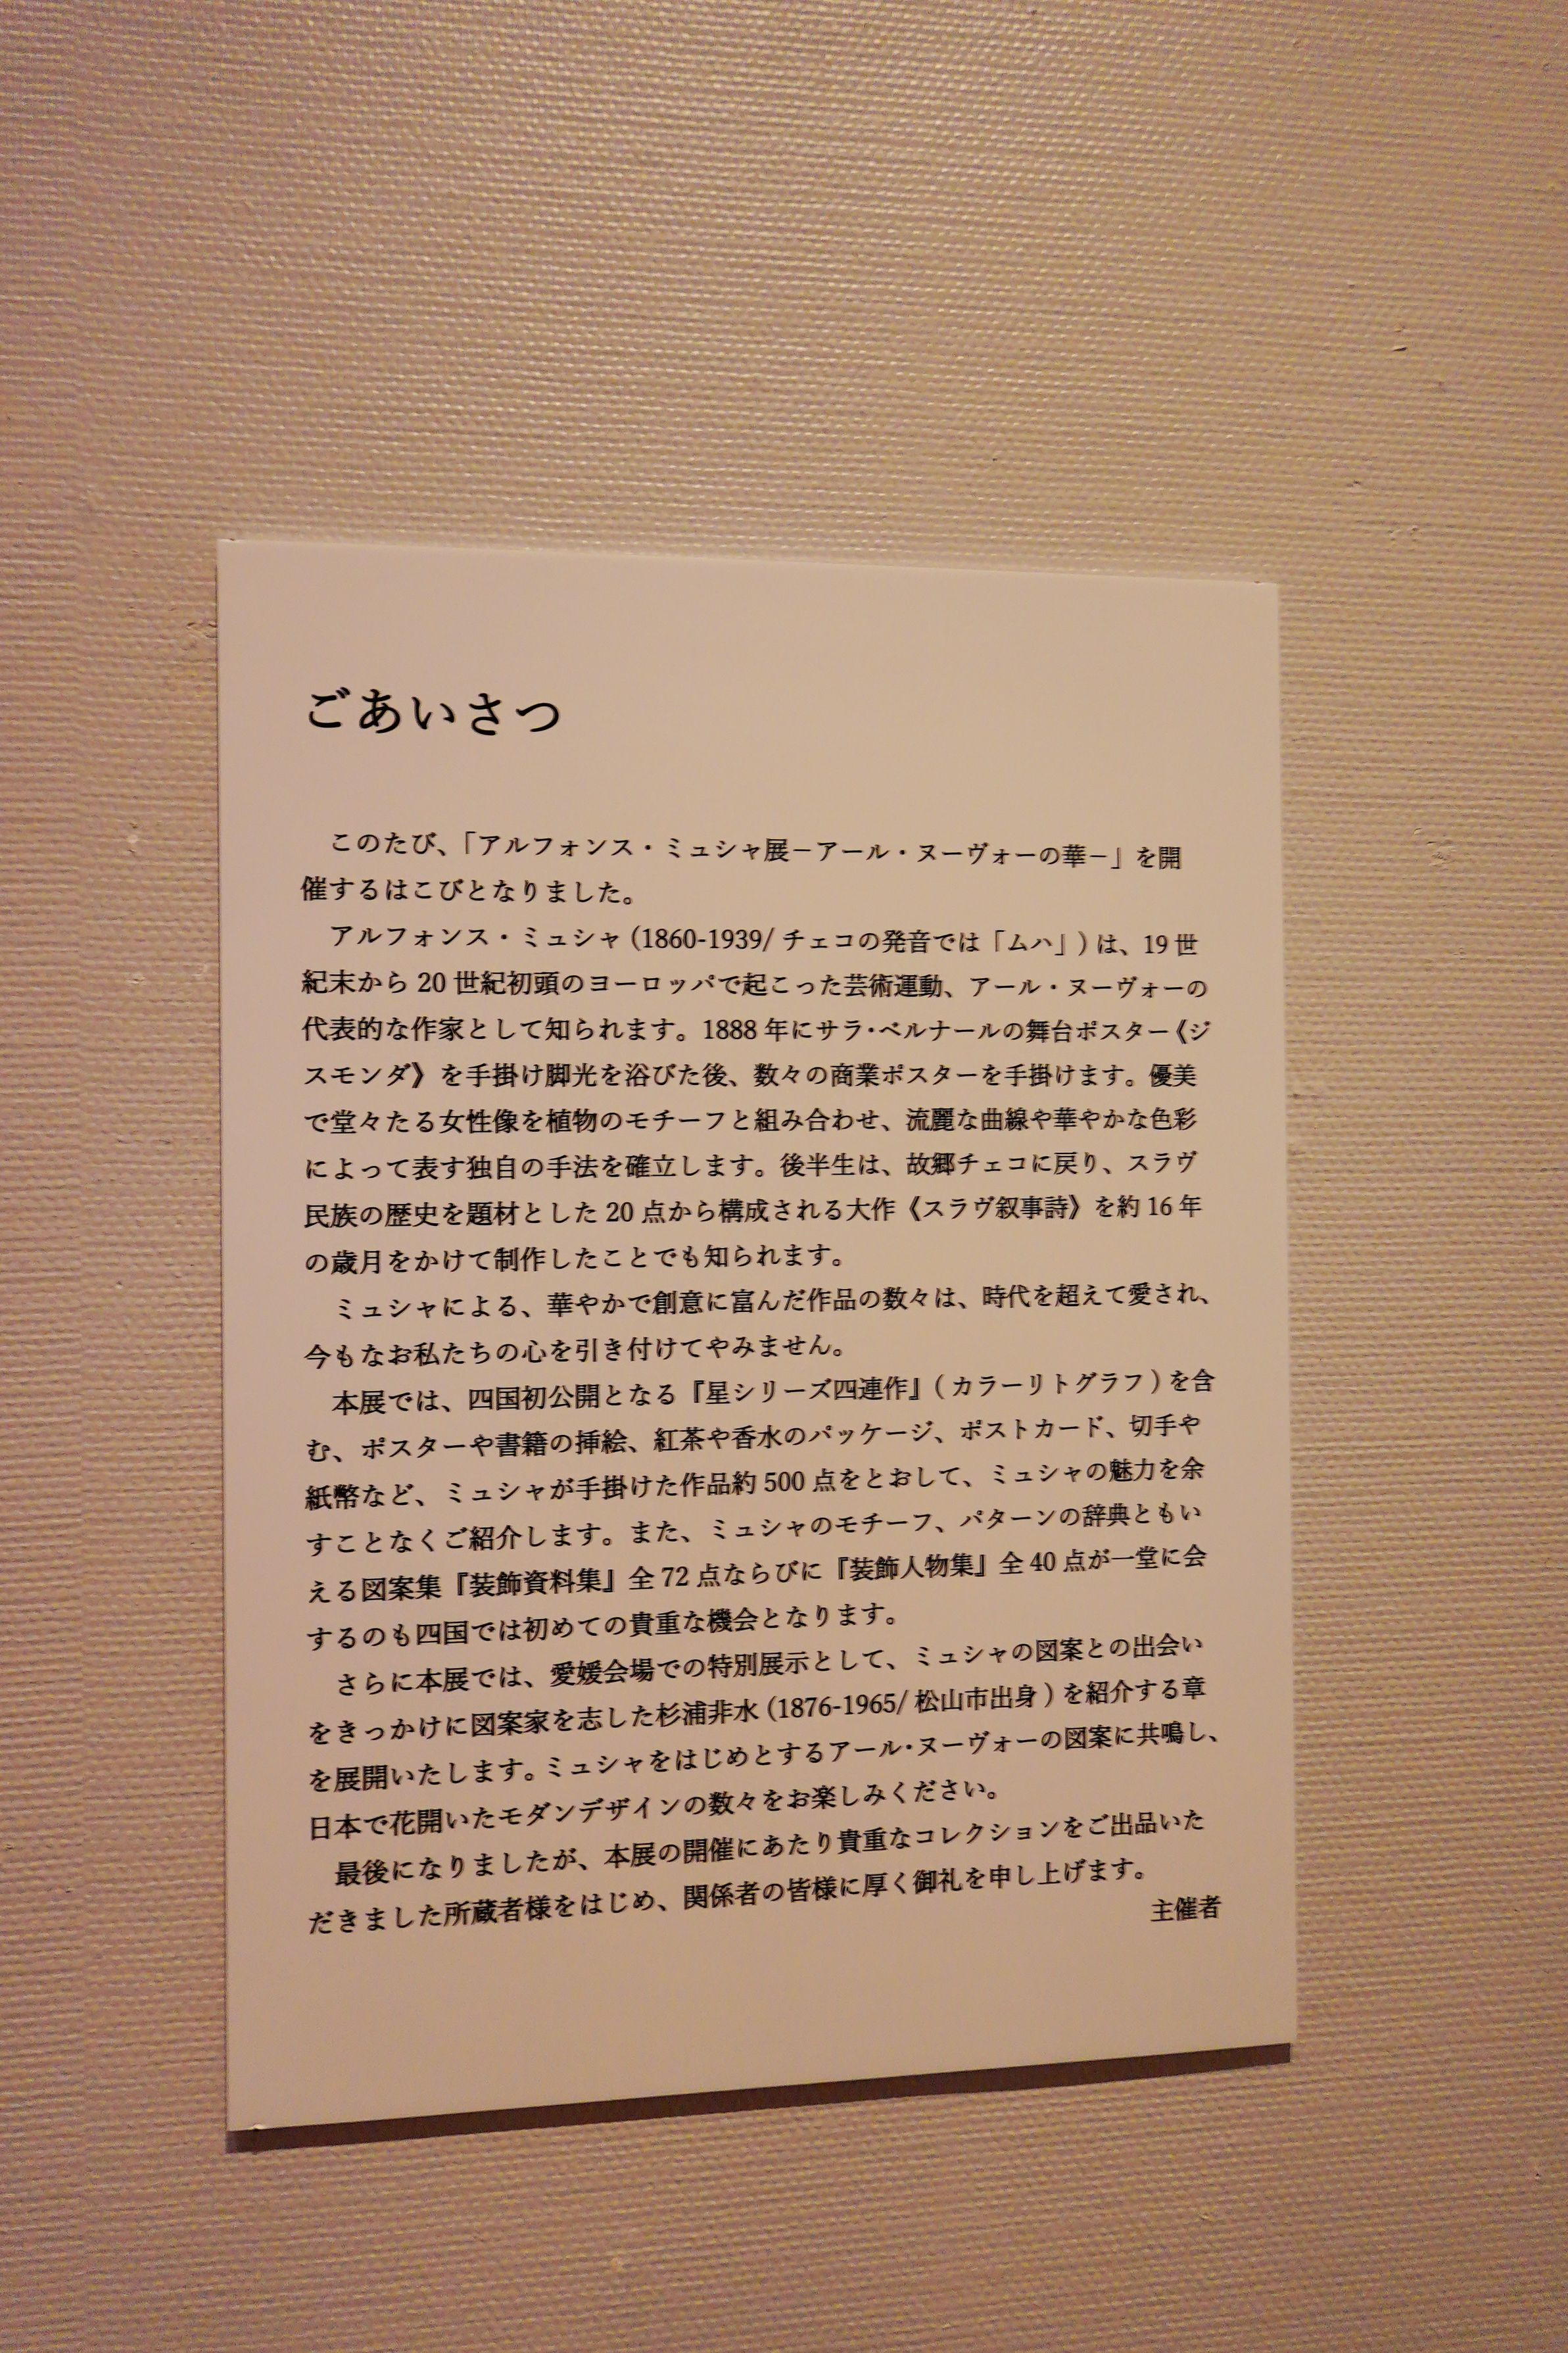 ごあいさつ
このたび、「アルフォンス・ミュシャ展－アール・ヌーヴォーの華－」を開
催するはこびとなりました。
アルフォンス・ミュシャ (1860-1939/ チェコの発音では「ムハ」) は、19 世
紀末から 20 世紀初頭のヨーロッパで起こった芸術運動、アール・ヌーヴォーの
代表的な作家として知られます。1888 年にサラ・ベルナールの舞台ポスター《ジ
スモンダ》を手掛け脚光を浴びた後、数々の商業ポスターを手掛けます。優美
で堂々たる女性像を植物のモチーフと組み合わせ、流麗な曲線や華やかな色彩
によって表す独自の手法を確立します。後半生は、故郷チェコに戻り、スラヴ
民族の歴史を題材とした 20 点から構成される大作《スラヴ叙事詩》を約 16 年
の歳月をかけて制作したことでも知られます。
ミュシャによる、華やかで創意に富んだ作品の数々は、時代を超えて愛され、
今もなお私たちの心を引き付けてやみません。
本展では、四国初公開となる『星シリーズ四連作』( カラーリトグラフ ) を含
む、ポスターや書籍の挿絵、紅茶や香水のパッケージ、ポストカード、切手や
紙幣など、ミュシャが手掛けた作品約 500 点をとおして、ミュシャの魅力を余
すことなくご紹介します。また、ミュシャのモチーフ、パターンの辞典ともい
える図案集『装飾資料集』全 72 点ならびに『装飾人物集』全 40 点が一堂に会
するのも四国では初めての貴重な機会となります。
さらに本展では、愛媛会場での特別展示として、ミュシャの図案との出会い
をきっかけに図案家を志した杉浦非水 (1876-1965/ 松山市出身 ) を紹介する章
を展開いたします。ミュシャをはじめとするアール・ヌーヴォーの図案に共鳴し、
日本で花開いたモダンデザインの数々をお楽しみください。
最後になりましたが、本展の開催にあたり貴重なコレクションをご出品いた
だきました所蔵者様をはじめ、関係者の皆様に厚く御礼を申し上げます。
主催者